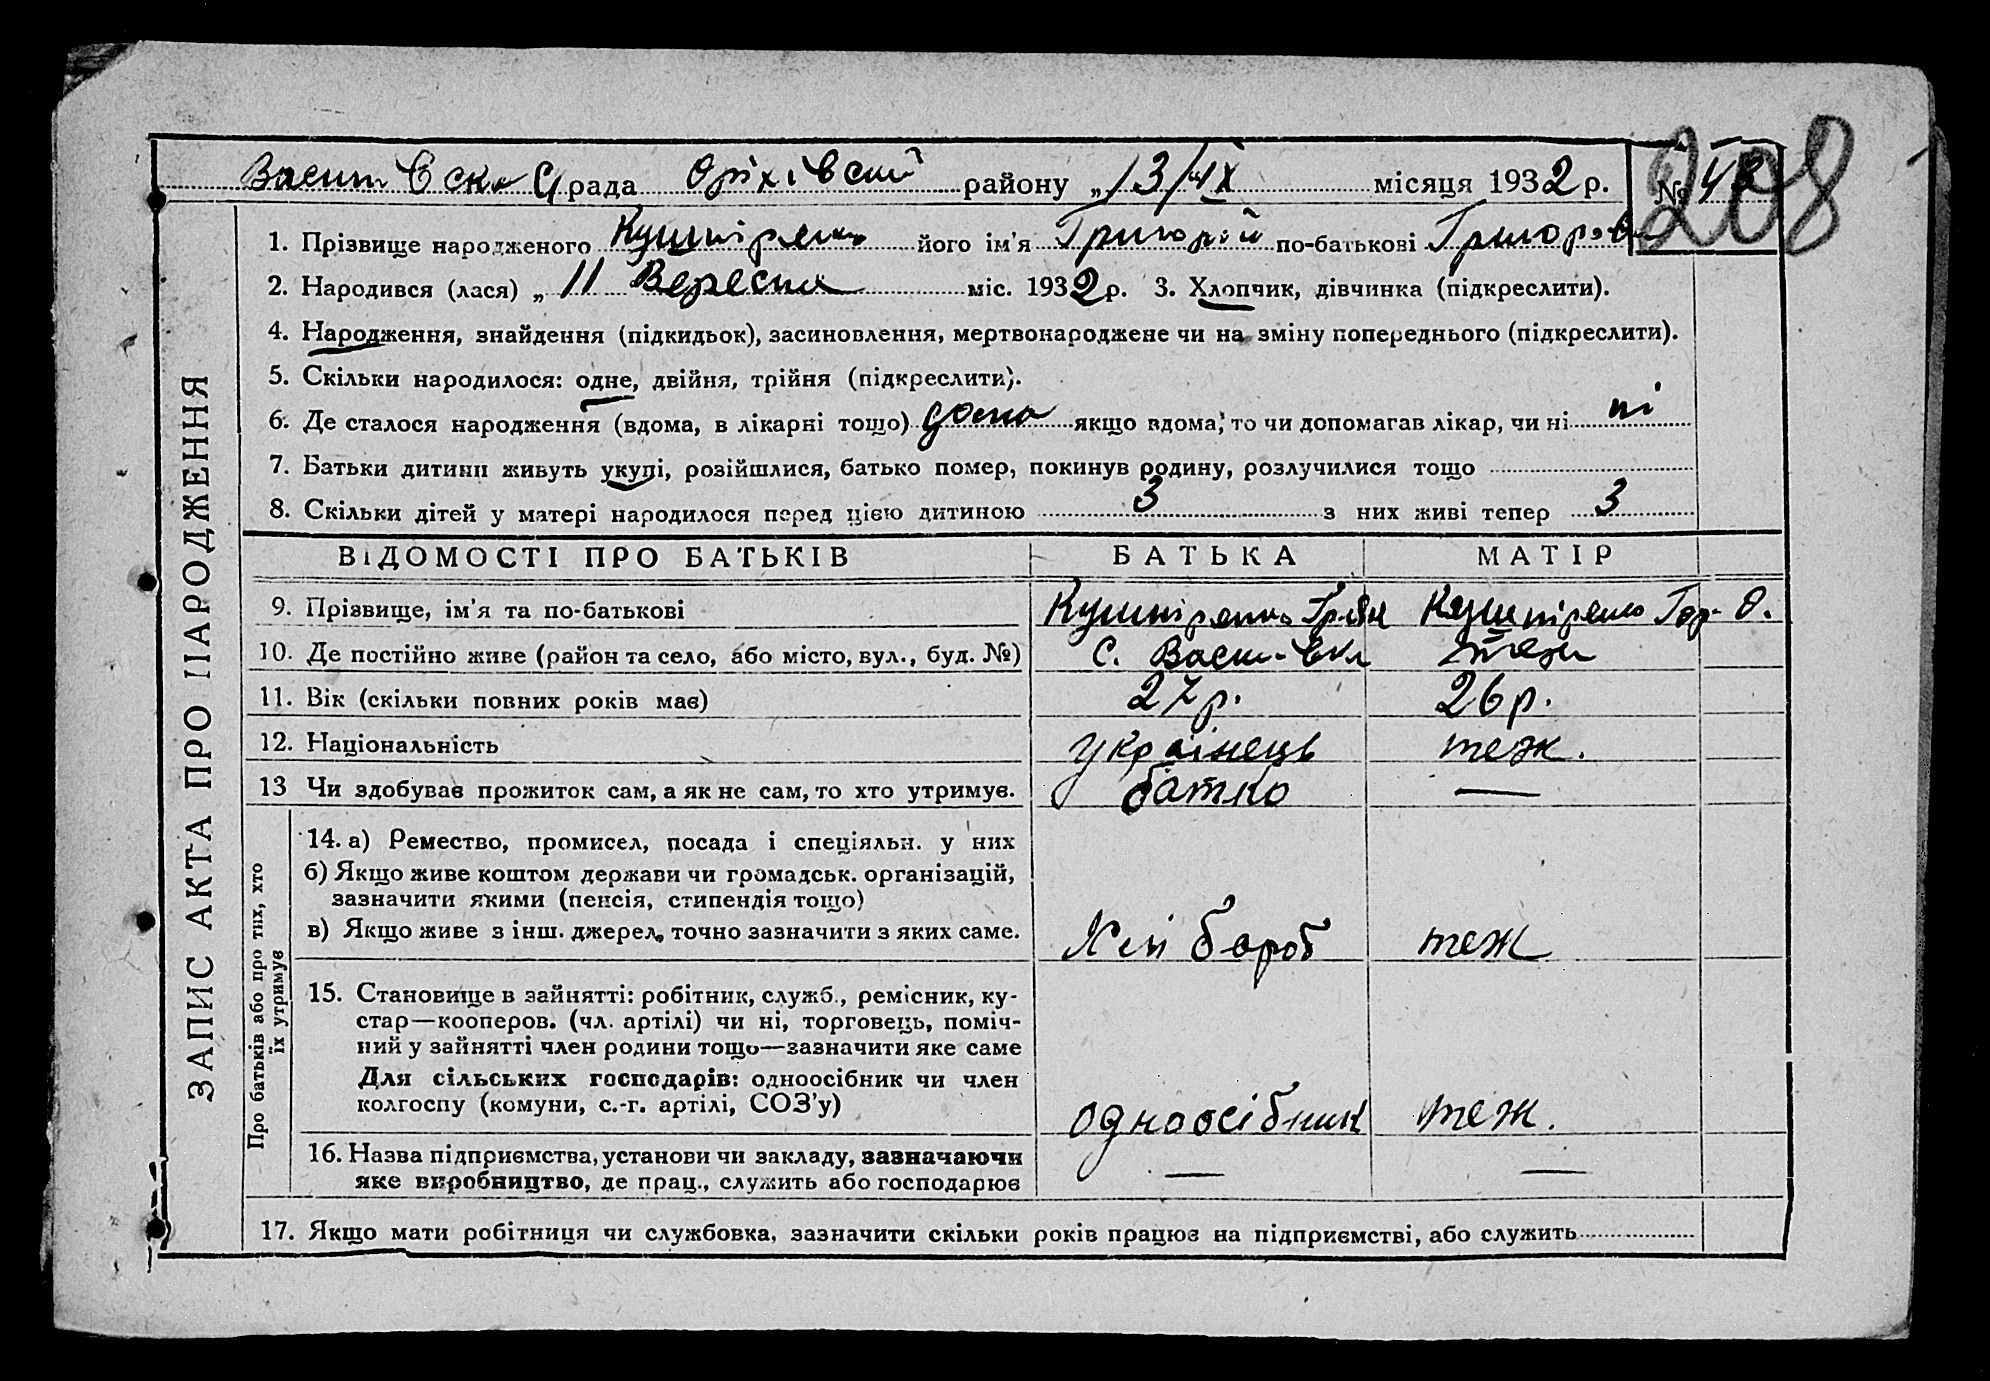 рада Оріхівський району „13/IX місяця 1932 р. № 43
208
ЗАПИС АКТА ПРО НАРОДЖЕННЯ
1. Прізвище народженого Кушніренко його ім'я Григорій по-батькові Григоров
2. Народився (лася) „ 11 Вересня міс. 1932 р. 3. Хлопчик, дівчинка (підкреслити).
4. Народження, знайдення (підкидьок), засиновлення, мертвонароджене чи на зміну попереднього (підкреслити).
5. Скільки народилося: одне, двійня, трійня (підкреслити).
6. Де сталося народження (вдома, в лікарні тощо) дома якщо вдома, то чи допомагав лікар, чи ні ні
7. Батьки дитини живуть укупі, розійшлися, батько помер, покинув родину, розлучилися тощо
8. Скільки дітей у матері народилося перед цією дитиною 3 з них живі тепер 3
ВІДОМОСТІ ПРО БАТЬКІВ БАТЬКА МАТІР
9. Прізвище, ім'я та по-батькові Кушніренко Кушніренко
10. Де постійно живе (район та село, або місто, вул., буд. №) с. теж
11. Вік (скільки повних років має) 27 р. 26 р.
12. Національність українець теж.
13 Чи здобував прожиток сам, а як не сам, то хто утримує. батко —
Про батьків або про тих, хто їх утримує
14. а) Ремество, промисел, посада і спеціяльн. у них
б) Якщо живе коштом держави чи громадськ. організацій,
зазначити якими (пенсія, стипендія тощо)
в) Якщо живе з інш. джерел, точно зазначити з яких саме. Хлібороб теж
15. Становище в зайнятті: робітник, служб., ремісник, ку-
стар—кооперов. (чл. артілі) чи ні, торговець, поміч-
ний у зайнятті член родини тощо—зазначити яке саме
Для сільських господарів: одноосібник чи член
колгоспу (комуни, с.-г. артілі, СОЗ'у) одноосібник теж.
16. Назва підприємства, установи чи закладу, зазначаючи
яке виробництво, де прац., служить або господарює — —
17. Якщо мати робітниця чи службовка, зазначити скільки років працює на підприємстві, або служить